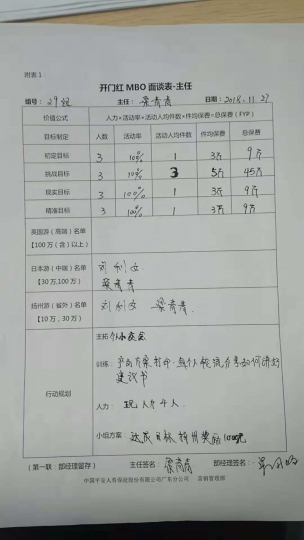 附表 1
开门红 MBO 面谈表-主任
组号：29组 主任：梁青青 日期：2018.11.27
价值公式 人力×活动率×活动人均件数×件均保费=总保费（FYP）
目标制定 人数 活动率 活动人均件数 件均保费 总保费
初定目标 3 100% 1 3万 9万
挑战目标 3 100% 3 5万 45万
现实目标 3 100% 1 3万 9万
精准目标 3 100% 1 3万 9万
英国游（高端）名单
【100万（含）以上】
日本游（中端）名单 刘利文
【30万,100万） 梁青青
扬州游（省外）名单 刘利文 梁青青
【10万，30万）
行动规划
主拓
训练：产品方案打印 每个人轮流分享如何讲好
建议书
人力： 现人力 4人
小组方案 达成目标 扬州奖励 1000元
（第一联：部经理留存） 主任签名：梁青青 部经理签名：
中国平安人寿保险股份有限公司广东分公司 营销管理部